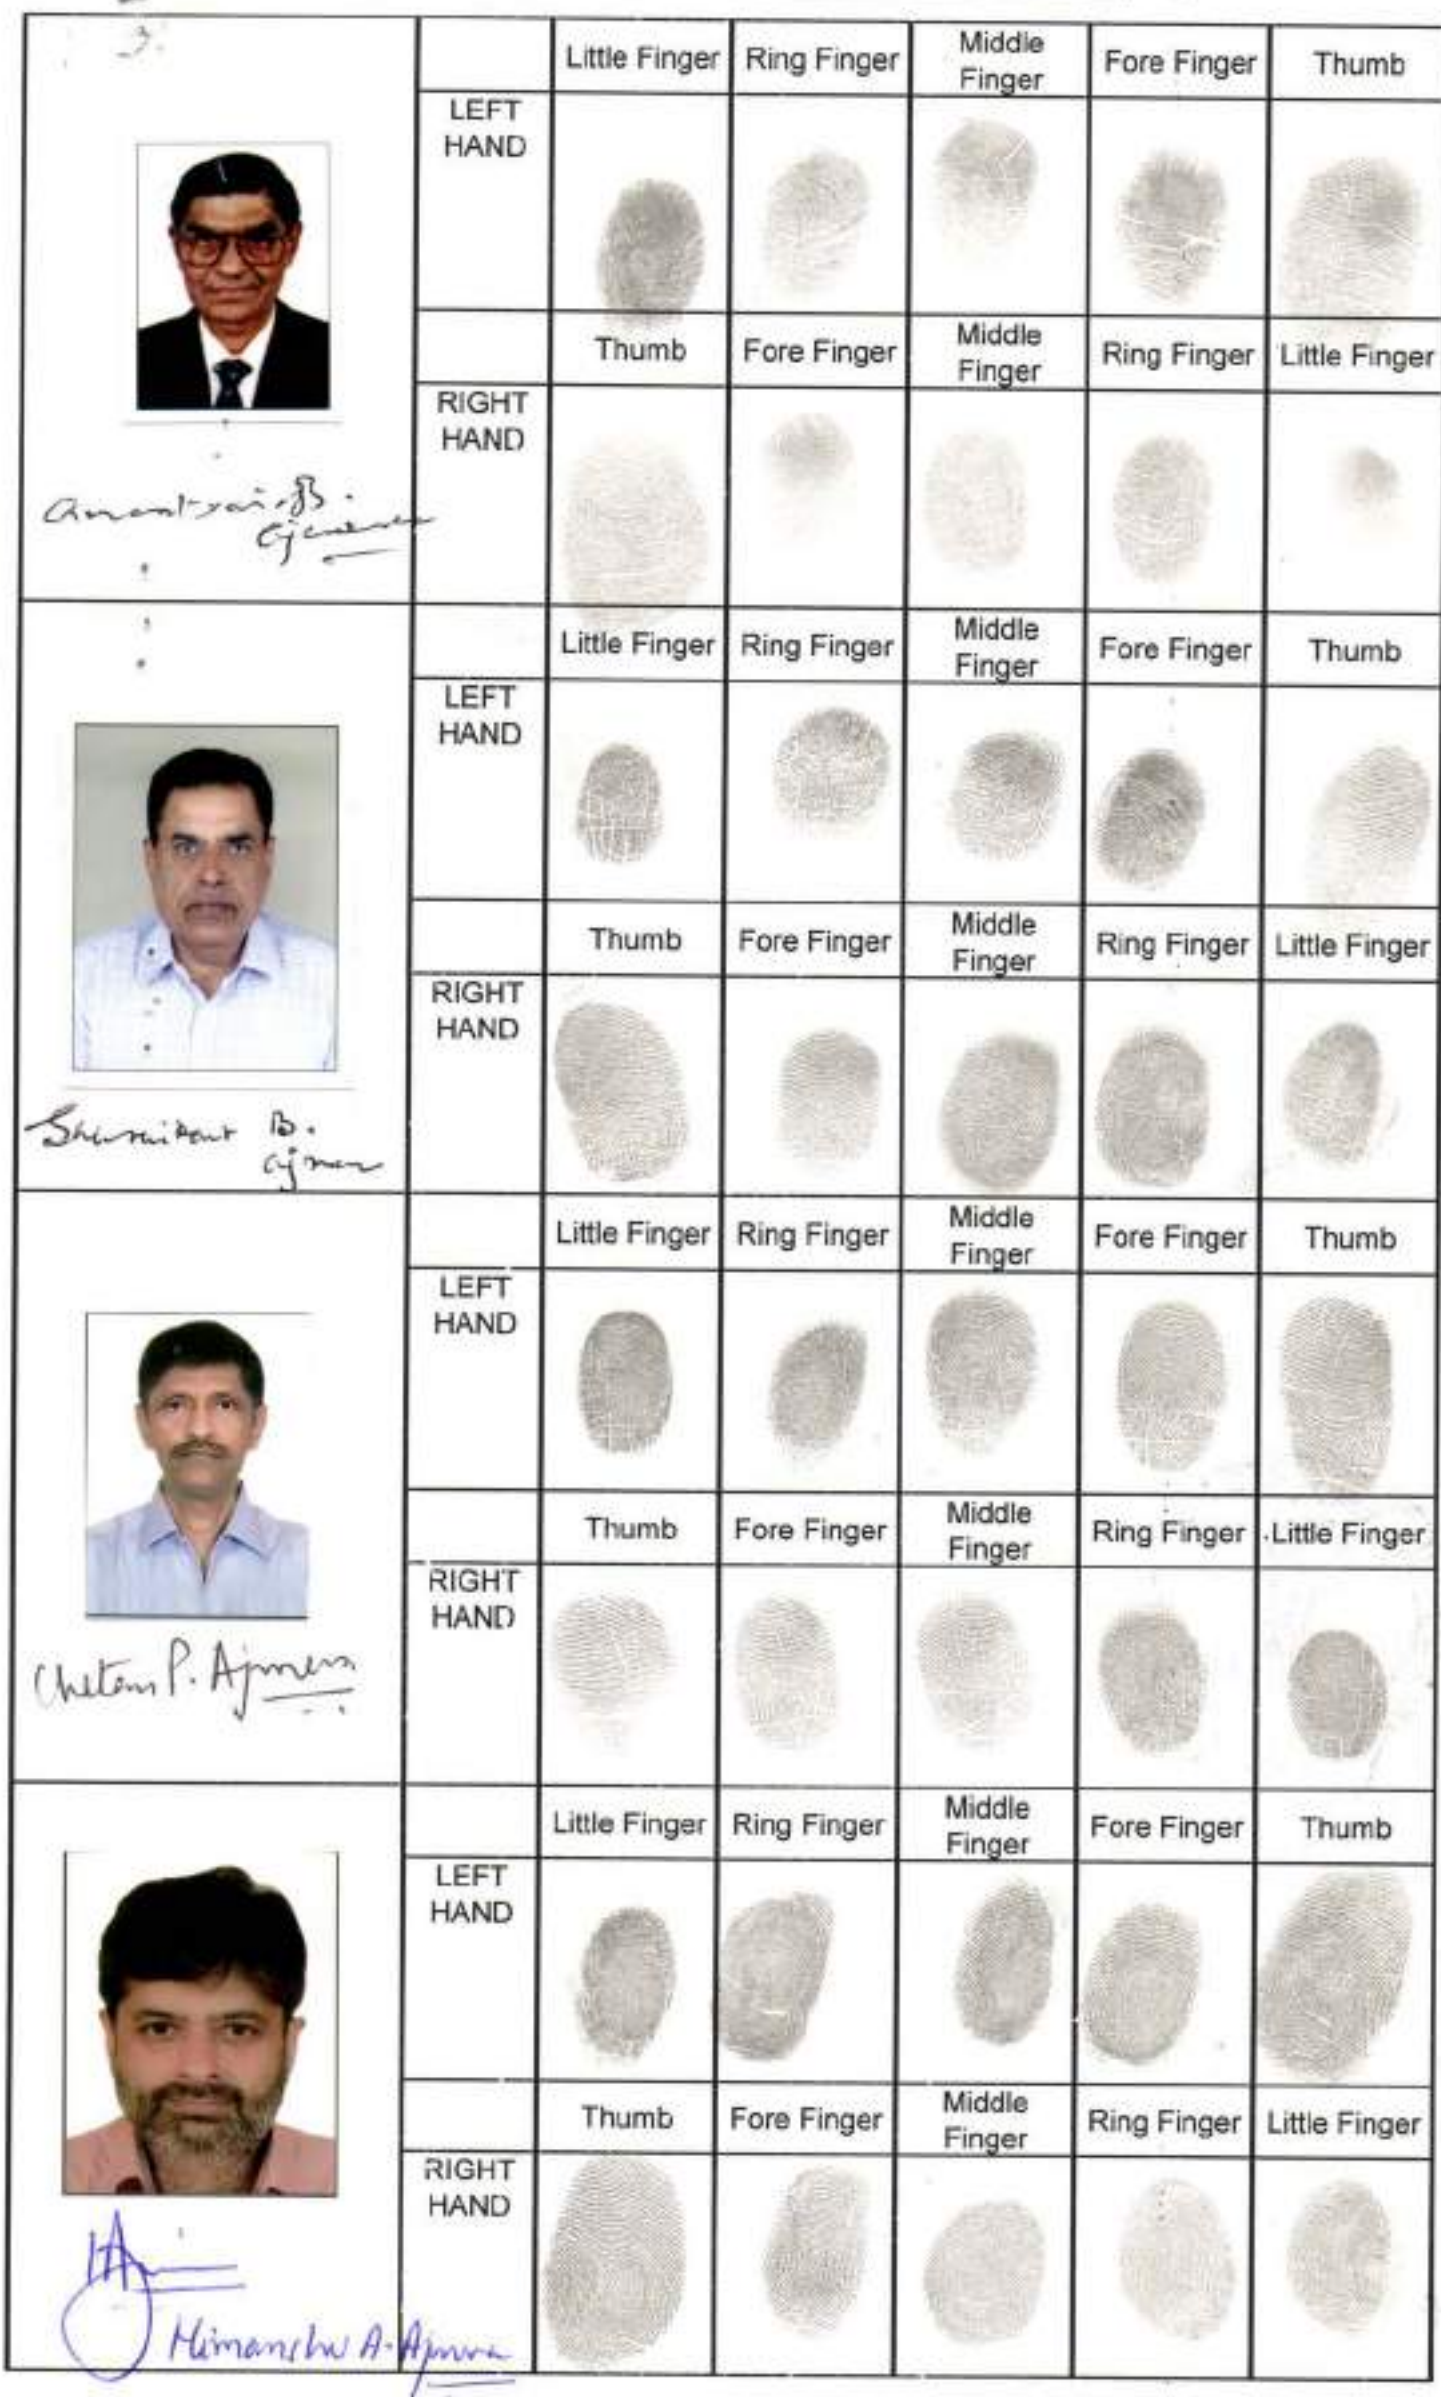 Little Finger Ring Finger Middle Finger Fore Finger Thumb
LEFT HAND
Thumb Fore Finger Middle Finger Ring Finger Little Finger
RIGHT HAND
Anantrai B.
Ajmera
Little Finger Ring Finger Middle Finger Fore Finger Thumb
LEFT HAND
Thumb Fore Finger Middle Finger Ring Finger Little Finger
RIGHT HAND
B.
Ajmera
Little Finger Ring Finger Middle Finger Fore Finger Thumb
LEFT HAND
Thumb Fore Finger Middle Finger Ring Finger Little Finger
RIGHT HAND
Chetan P. Ajmera
Little Finger Ring Finger Middle Finger Fore Finger Thumb
LEFT HAND
Thumb Fore Finger Middle Finger Ring Finger Little Finger
RIGHT HAND
Himanshu A. Ajmera